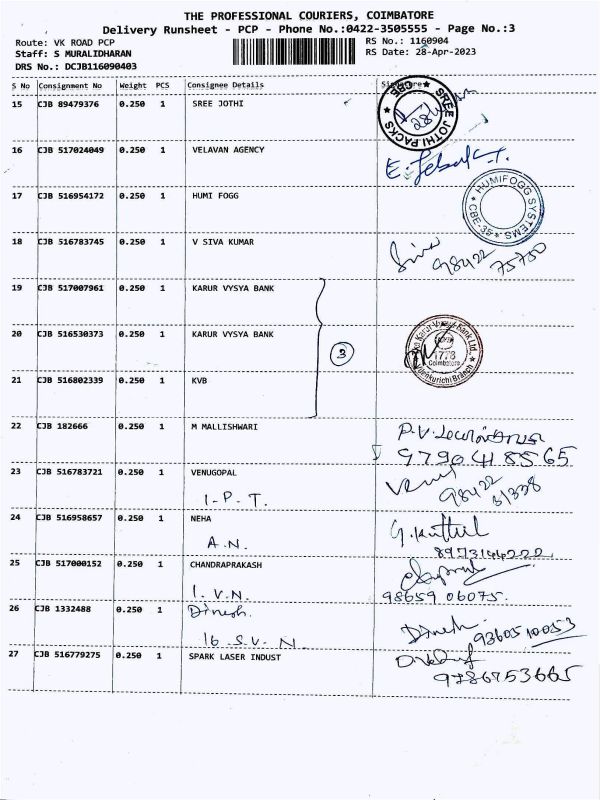 THE PROFESSIONAL COURIERS, COIMBATORE
Delivery Runsheet - PCP - Phone No.:0422-3505555 - Page No.:3
Route: VK ROAD PCP RS No.: 1160904
Staff: S MURALIDHARAN RS Date: 28-Apr-2023
DRS No.: DCJB116090403
S No Consignment No Weight PCS Consignee Details
15 CJB 89479376 0.250 1 SREE JOTHI
SREE JOTHI PACKS CBE
16 CJB 517024049 0.250 1 VELAVAN AGENCY
17 CJB 516954172 0.250 1 HUMI FOGG
HUMIFOGG SYSTEMS CBE-35
18 CJB 516783745 0.250 1 V SIVA KUMAR
Siva 98422 75750
19 CJB 517007961 0.250 1 KARUR VYSYA BANK
20 CJB 516530373 0.250 1 KARUR VYSYA BANK
3
Karur Vysya Bank Ltd. 1778 Coimbatore Branch
21 CJB 516802339 0.250 1 KVB
22 CJB 182666 0.250 1 M MALLISHWARI
P.V.
9790418565
23 CJB 516783721 0.250 1 VENUGOPAL
I-P-T. 98422
24 CJB 516958657 0.250 1 NEHA
A.N. 8973144222
25 CJB 517000152 0.250 1 CHANDRAPRAKASH
I.V.N. 98659 06075.
26 CJB 1332488 0.250 1 Dinesh.
16 S.V.N. Dinesh 9360510053
27 CJB 516779275 0.250 1 SPARK LASER INDUST
9786753665